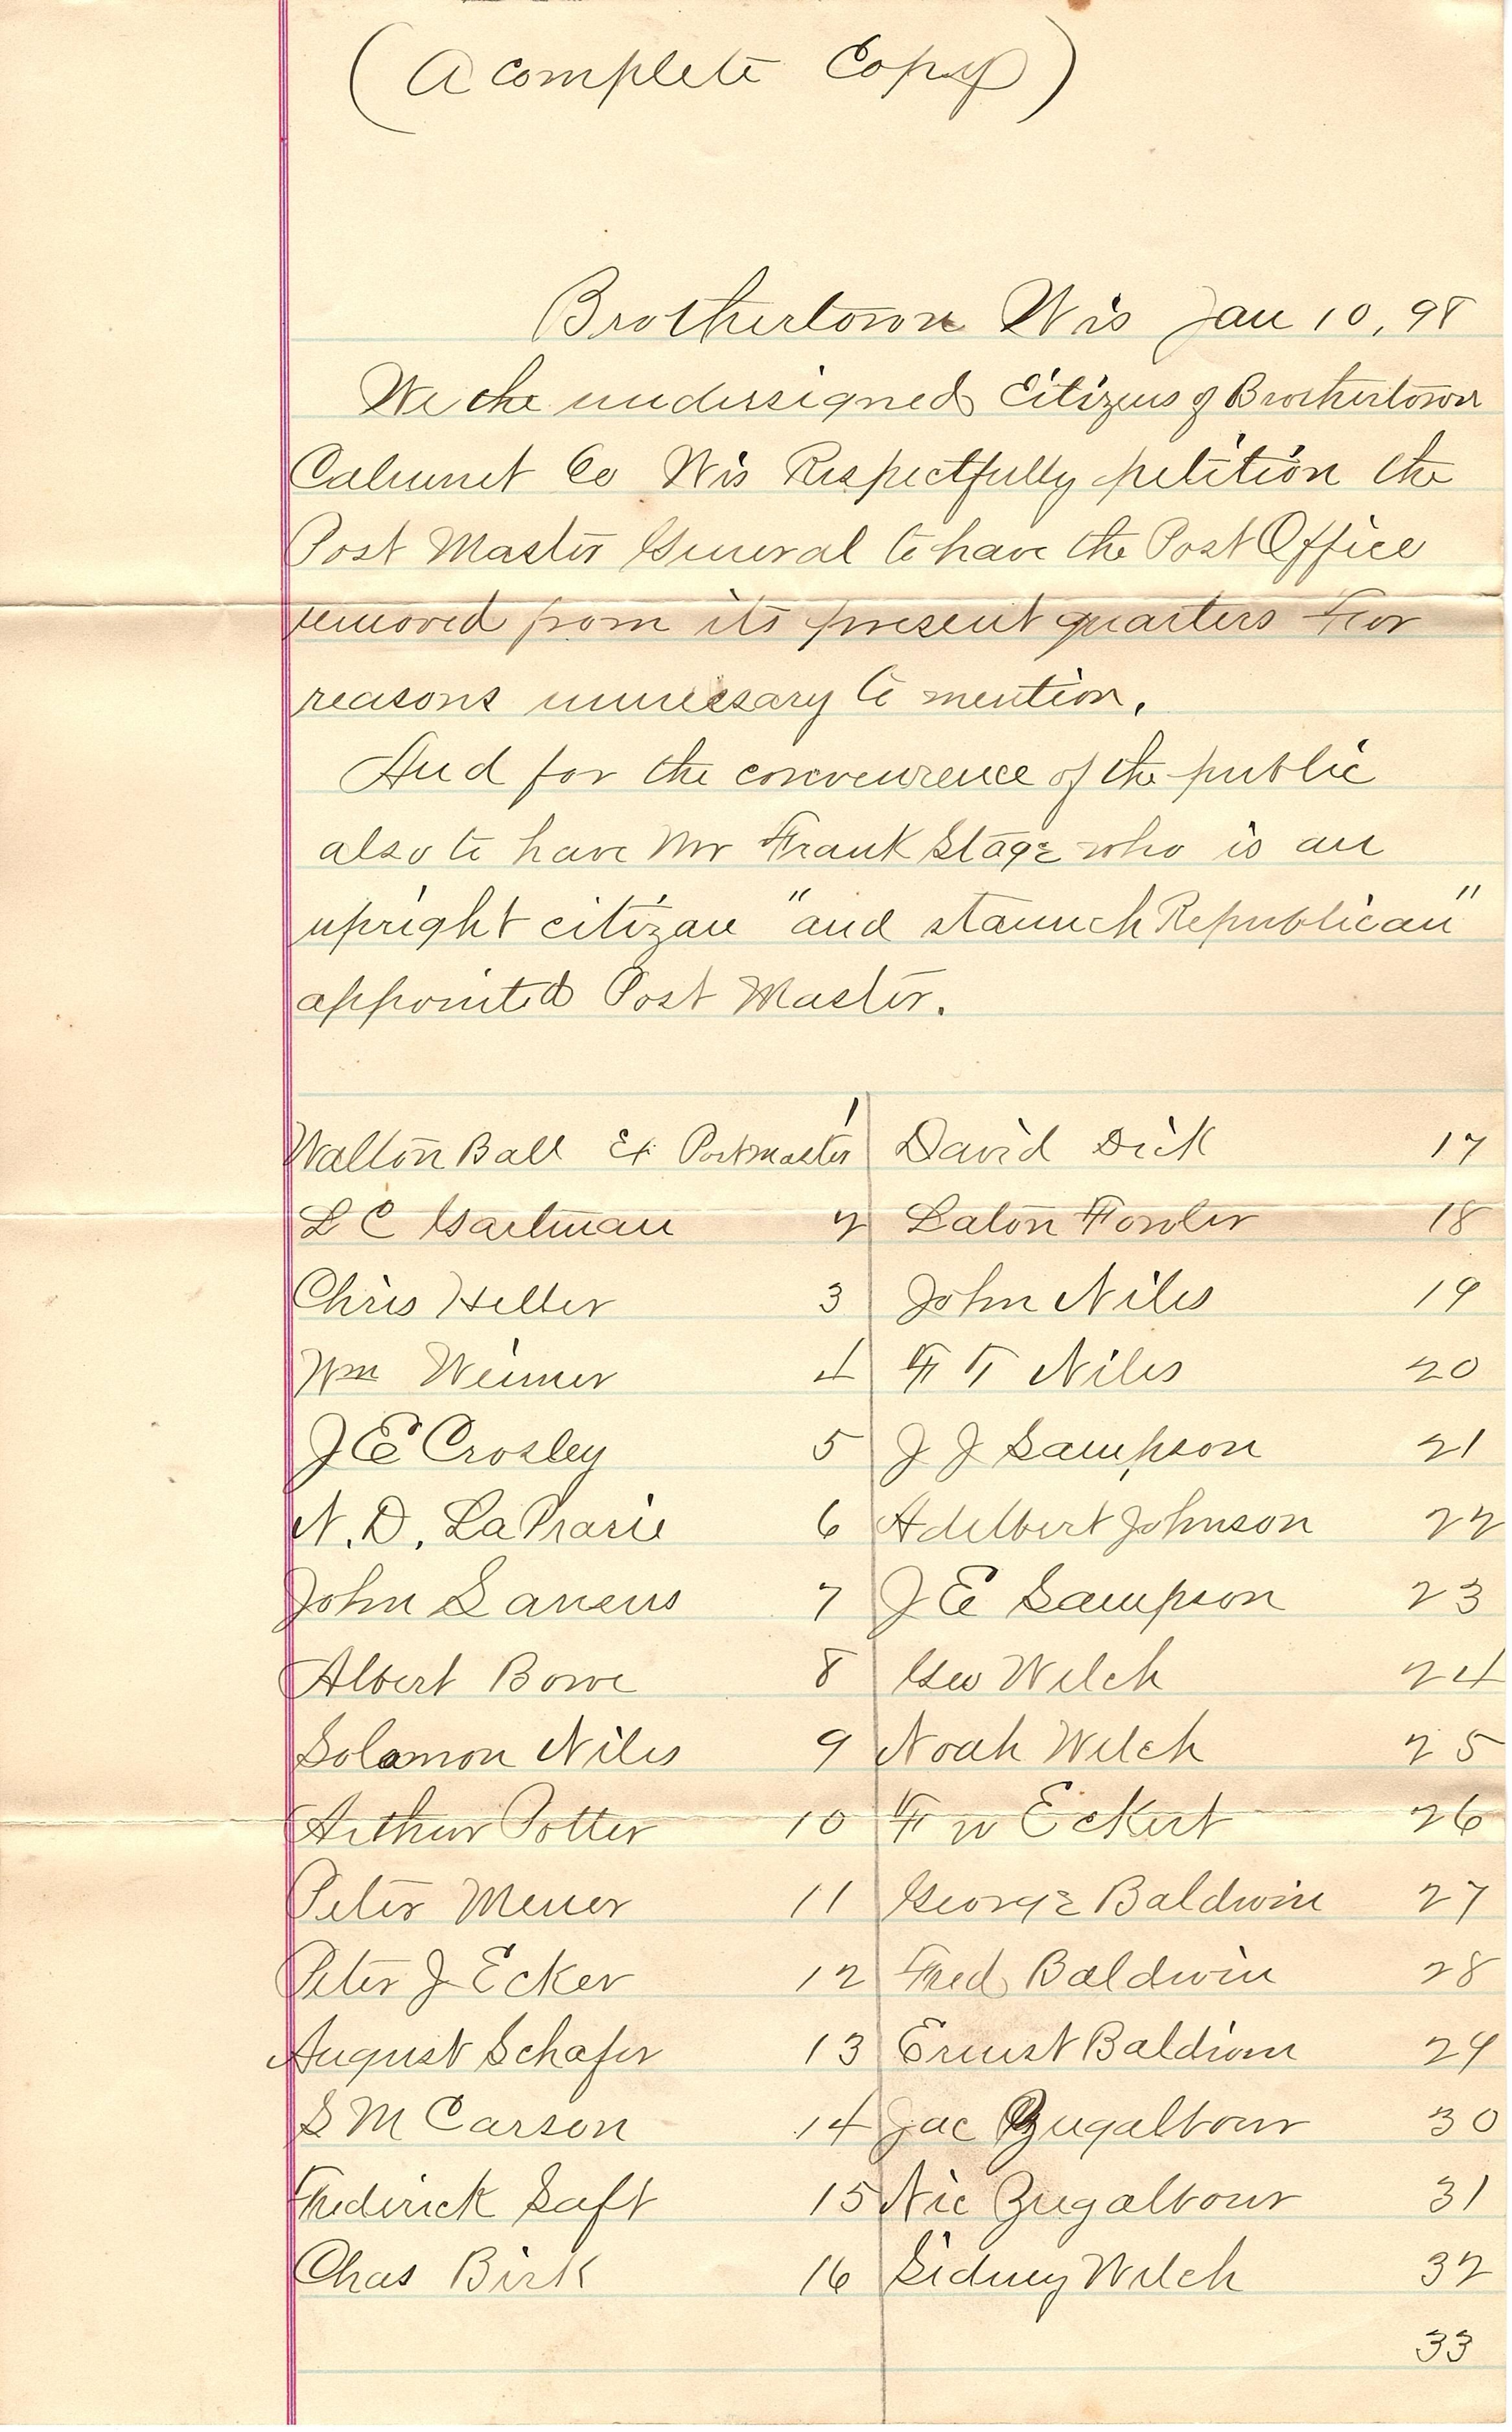 (A complete Copy)
Brothertown Wis Jan 10, 98
We the undersigned Citizens of Brothertown
Calumet Co Wis Respectfully petition the
Post Master General to have the Post Office
removed from its present quarters For
reasons unnecesary to mention.
And for the convenience of the public
also to have Mr Frank Stage who is an
upright citizan "and staunch Republican"
appointed Post Master.
Walton Ball Ex Postmaster 1 David Dick 17
L C Gartman 2 Laton Fowler 18
Chris Heller 3 John Niles 19
Wm Weimer 4 F T Niles 20
J E Crosley 5 J J Sampson 21
N. D. LaPrarie 6 Adelbert Johnson 22
John 7 J E Sampson 23
Albert Bowe 8 Geo Welch 24
Solomon Niles 9 Noah Welch 25
Arthur Potter 10 F W Eckert 26
Peter 11 George Baldwin 27
Peter J Ecker 12 Fred Baldwin 28
August Schafer 13 Ernest Baldwin 29
S M Carson 14 Jac 30
Frederick Saft 15 Nic 31
Chas Birk 16 Sidney Welch 32
33